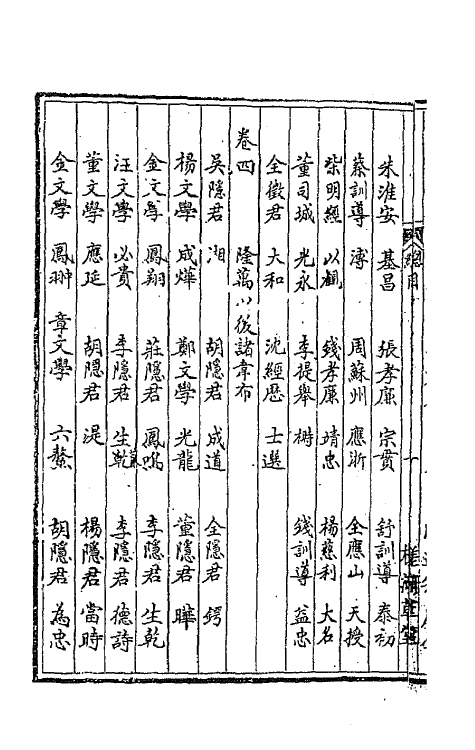 朱淮安 基昌 張孝廉 宗貫 舒訓導 泰初
蔡訓導 溥 周蘇州 應浙 全應山 天授
柴明經 以觀 錢孝廉 靖忠 楊慈利 大名
董司城 光永 李提舉 樹 錢訓導 益忠
全徵君 大和 沈經歷 士選
卷四 隆萬以後諸韋布
吳隱君 湘 胡隱君 成道 全隱君 鍔
楊文學 成燁 鄭文學 光龍 董隱君 曄
金文學 鳳翔 莊隱君 鳳鳴 李隱君 生乾
汪文學 必貴 李隱君 生乾 李隱君 德詩
董文學 應延 胡隱君 湜 楊隱君 當時
金文學 鳳翀 章文學 六鰲 胡隱君 為忠
總目
一
槎湖草堂